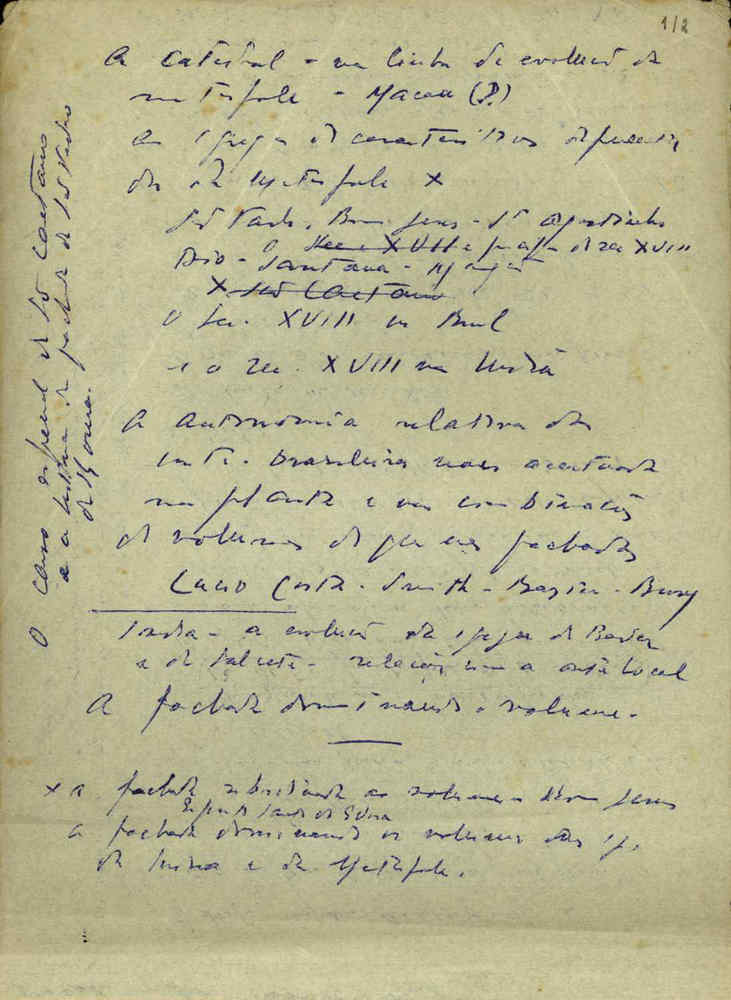 1/2
A catedral - na linha de evolução da
metrópole - Macau (?)
as igrejas de características dependen
da metrópole x
São Paulo, Bom Jesus - Stº Agostinho
sec XVII e de sec XVIII
Santana -
x São Caetano
O sec. XVIII no Brasil
e o sec. XVIII na India
A autonomia relativa da
arte brasileira mais acentuada
na planta e nas combinações
de volumes do que nas fachadas
Lucio Costa - Smith - Bazin - Bury
India - a evolução das igrejas de Bardez
e de Salcete - relações com a arte local
A fachada dominando o volume -
x a fachada subordinada ao volume - Bom Jesus
Espirito Santo de Evora
a fachada dominando os volumes das ig.
da India e da Metrópole.
O caso especial de São Caetano
e a fachada de São Pedro
de Roma.